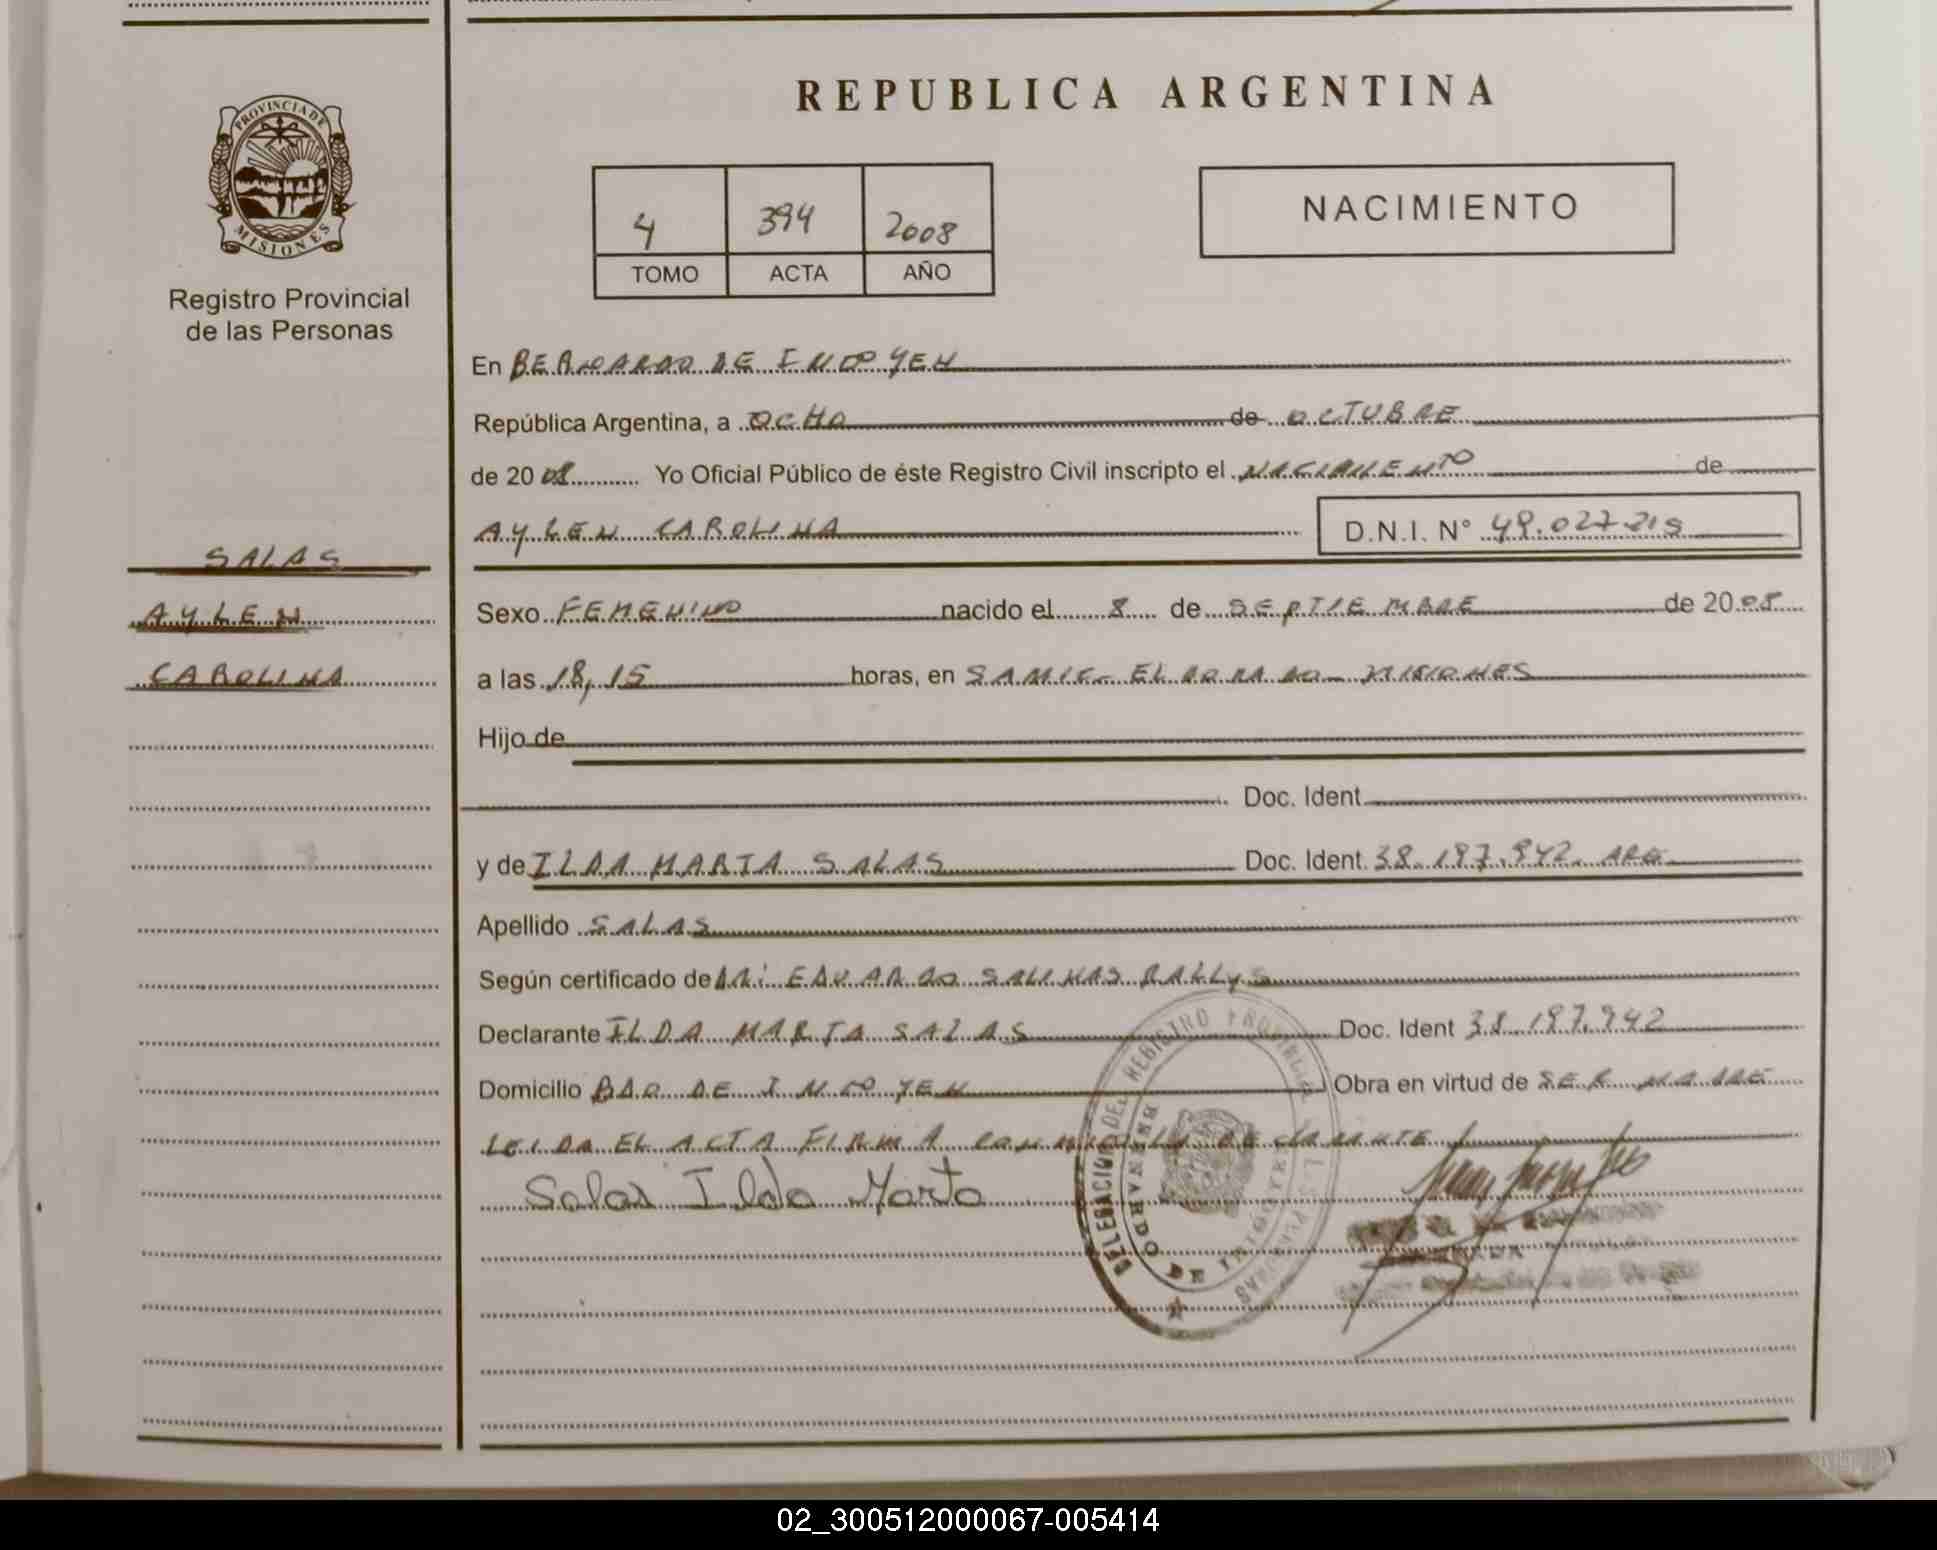 REPUBLICA ARGENTINA
PROVINCIA DE
MISIONES
Registro Provincial
de las Personas
4 394 2008
TOMO ACTA AÑO
NACIMIENTO
En BERNARDO DE IRIGOYEN
República Argentina, a OCHO de OCTUBRE
de 20 08 Yo Oficial Público de éste Registro Civil inscripto el NACIMIENTO de
AYLEN CAROLINA D.N.I. N° 49.027.215
SALAS
AYLEN
CAROLINA
Sexo FEMENINO nacido el 8 de SEPTIEMBRE de 20 08
a las 18,15 horas, en SAMIC- ELDORADO- MISIONES
Hijo de
Doc. Ident.
y de ILDA MARIA SALAS Doc. Ident. 38.197.942. ARG
Apellido SALAS
Según certificado de EDUARDO SALINAS
Declarante ILDA MARIA SALAS Doc. Ident 38.197.942
Domicilio BDO DE IRIGOYEN Obra en virtud de SER MADRE
LEIDA EL ACTA FIRMA CONMIGO LA DECLARANTE
Salas Ilda Maria
DELEGACION DEL REGISTRO PROVINCIAL DE LAS PERSONAS
BERNARDO DE IRIGOYEN
02_300512000067-005414